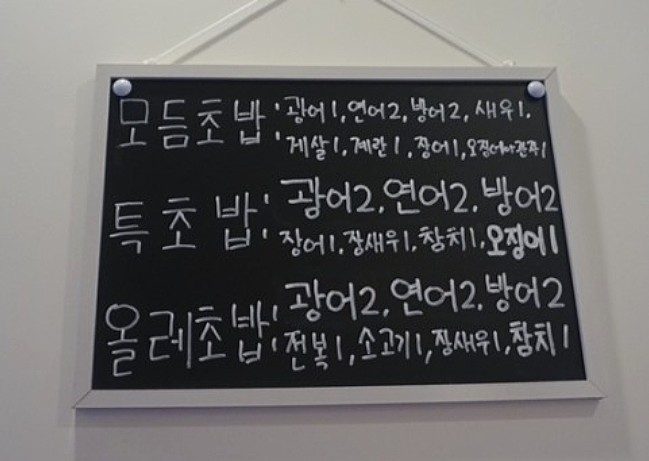 모듬초밥: 광어1, 연어2, 방어2, 새우1,
게살1, 계란1, 장어1, 오징어or관자1
특초밥: 광어2, 연어2, 방어2
장어1, 장새우1, 참치1, 오징어1
올레초밥: 광어2, 연어2, 방어2
전복1, 소고기1, 장새우1, 참치1